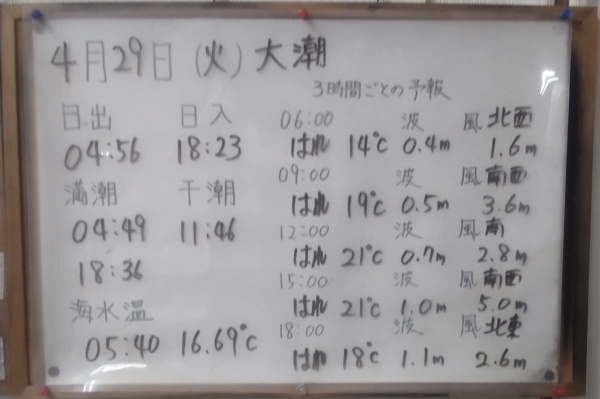 4月29日(火)大潮
3時間ごとの予報
日出 日入
04:56 18:23
満潮 干潮
04:49 11:46
18:36
海水温
05:40 16.69℃
06:00 波 風 北西
はれ 14℃ 0.4m 1.6m
09:00 波 風 南西
はれ 19℃ 0.5m 3.6m
12:00 波 風 南
はれ 21℃ 0.7m 2.8m
15:00 波 風 南西
はれ 21℃ 1.0m 5.0m
18:00 波 風 北東
はれ 18℃ 1.1m 2.6m